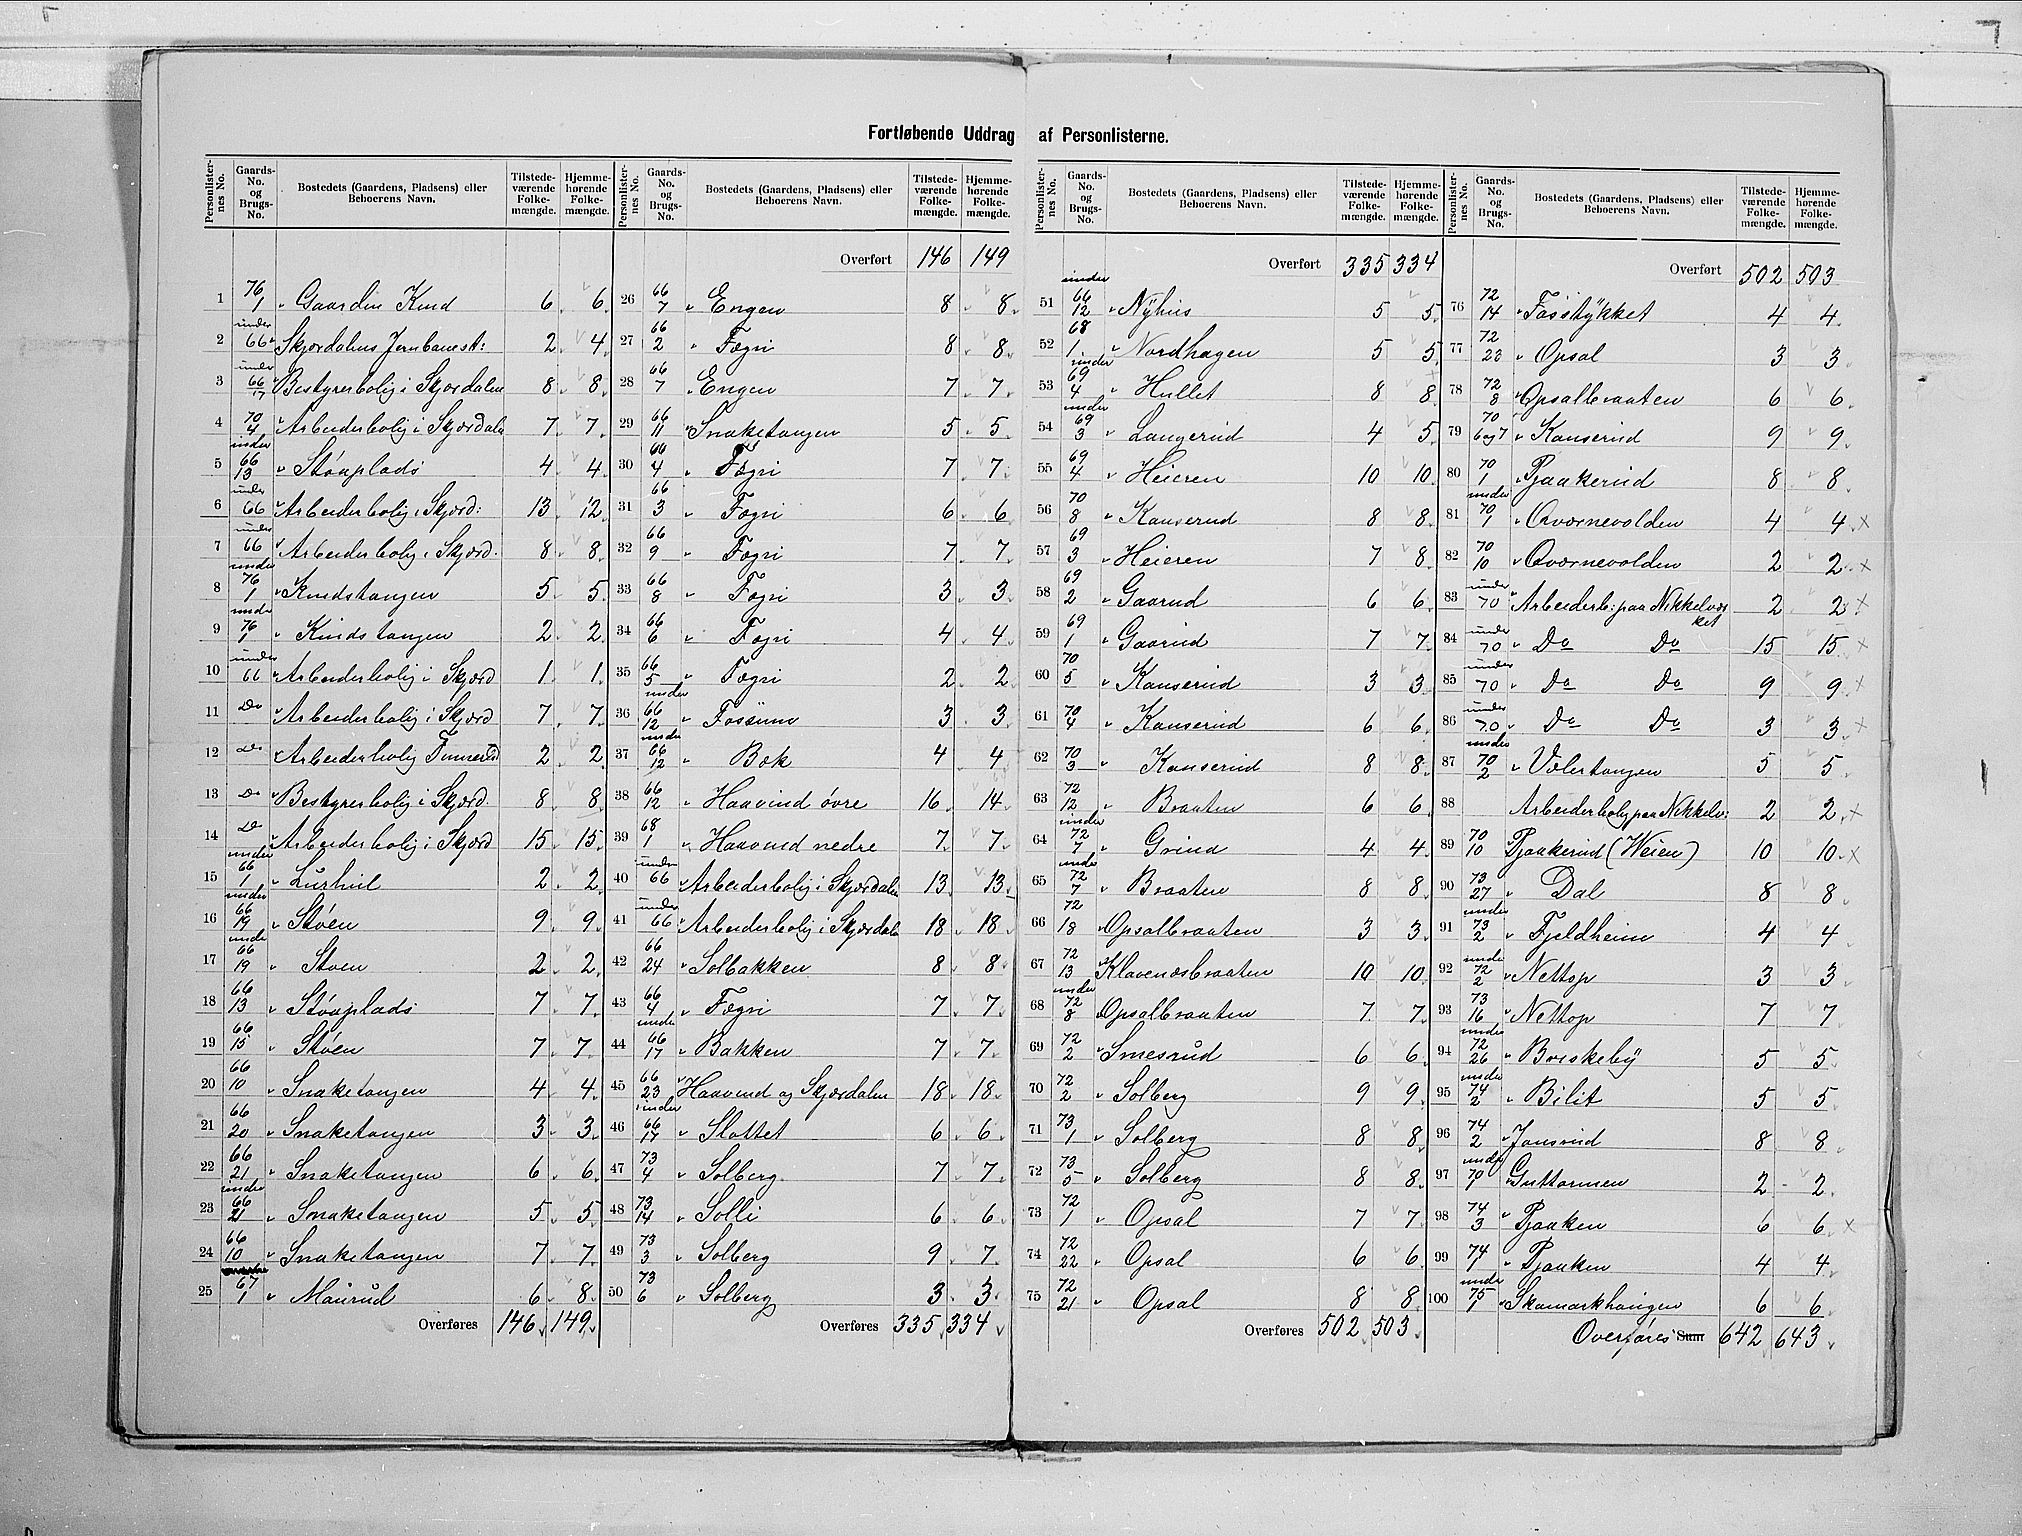 Fortløbende Uddrag af Personlisterne.
Personlister-nes No. | Gaards-No. og Brugs-No. | Bostedets (Gaardens, Pladsens) eller Beboerens Navn. | Tilstede-værende Folke-mængde. | Hjemme-hørende Folke-mængde.
1 76/1 " Gaarden Knud 6 6
2 under 66 " Skjærdalens Jernbanest: 2 4
3 under 66/17 " Bestyrerbolig i Skjærdalen 8 8
4 70/4 " Arbeiderbolig i Skjærdale 7 7
5 under 66/13 " Støaplads 4 4
6 under 66 " Arbeiderbolig i Skjærd: 13 12
7 under 66 " Arbeiderbolig i Skjærd. 8 8
8 under 76/1 " Knudstangen 5 5
9 under 76/1 " Knudstangen 2 2
10 under 66 " Arbeiderbolig i Skjærd 1 1
11 Do " Arbeiderbolig i Skjærd 7 7
12 Do " Arbeiderbolig 2 2
13 Do " Bestyrerbolig i Skjærd. 8 8
14 Do " Arbeiderbolig i Skjærd 15 15
15 under 66/1 " Lurhul 2 2
16 under 66/19 " Støen 9 9
17 under 66/19 " Støen 2 2
18 66/13 " Støaplads 7 7
19 66/15 " Støen 7 7
20 66/10 " Snaketangen 4 4
21 66/20 " Snaketangen 3 3
22 66/21 " Snaketangen 6 6
23 under 66/21 " Snaketangen 5 5
24 66/10 " Snaketangen 7 7
25 67/1 " Maurud 6 8
Overføres 146 149
Personlister-nes No. | Gaards-No. og Brugs-No. | Bostedets (Gaardens, Pladsens) eller Beboerens Navn. | Tilstede-værende Folke-mængde. | Hjemme-hørende Folke-mængde.
Overført 146 149
26 66/7 " Engen 8 8
27 66/2 " Fægri 8 8
28 66/7 " Engen 7 7
29 66/11 " Snaketangen 5 5
30 66/4 " Fægri 7 7
31 66/3 " Fægri 6 6
32 66/9 " Fægri 7 7
33 66/8 " Fægri 3 3
34 66/6 " Fægri 4 4
35 66/5 " Fægri 2 2
36 under 66/12 " Fossum 3 3
37 under 66/12 " Bæk 4 4
38 66/12 " Haavind øvre 16 14
39 68/1 " Haavind nedre 7 7
40 under 66 " Arbeiderbolig i Skjærdalen 13 13
41 under 66 " Arbeiderbolig i Skjærdale 18 18
42 66/24 " Solbakken 8 8
43 66/4 " Fægri 7 7
44 under 66/17 " Bakken 7 7
45 66/23 " Haavind og Skjærdalen 18 18
46 under 66/17 " Slottet 6 6
47 73/4 " Solberg 7 7
48 73/14 " Solli 6 6
49 73/3 " Solberg 9 7
50 73/6 " Solberg 3 3
Overføres 335 334
Personlister-nes No. | Gaards-No. og Brugs-No. | Bostedets (Gaardens, Pladsens) eller Beboerens Navn. | Tilstede-værende Folke-mængde. | Hjemme-hørende Folke-mængde.
Overført 335 334
51 under 66/12 " Nÿhus 5 5
52 68/1 " Nordhagen 5 5
53 under 69/4 " Hullet 8 8
54 under 69/3 " Langerud 4 5
55 69/4 " Heieren 10 10
56 70/8 " Kanserud 8 8
57 69/3 " Heieren 7 8
58 69/2 " Gaarud 6 6
59 69/1 " Gaarud 7 7
60 70/5 " Kanserud 3 3
61 70/4 " Kanserud 6 6
62 70/3 " Kanserud 8 8
63 72/12 " Braaten 6 6
64 under 72/7 " Grind 4 4
65 under 72/7 " Braaten 8 8
66 72/18 " Opsalbraaten 3 3
67 72/13 " Klavenæsbraaten 10 10
68 under 72/8 " Opsalbraaten 7 7
69 72/2 " Smesrud 6 6
70 72/2 " Solberg 9 9
71 73/1 " Solberg 8 8
72 73/5 " Solberg 8 8
73 72/1 " Opsal 7 7
74 72/22 " Opsal 6 6
75 72/21 " Opsal 8 8
Overføres 502 503
Personlister-nes No. | Gaards-No. og Brugs-No. | Bostedets (Gaardens, Pladsens) eller Beboerens Navn. | Tilstede-værende Folke-mængde. | Hjemme-hørende Folke-mængde.
Overført 502 503
76 72/14 " Fosstykket 4 4
77 72/23 " Opsal 3 3
78 72/8 " Opsalbraaten 6 6
79 70/6 og 7 " Kanserud 9 9
80 70/1 " Pjaakerud 8 8
81 under 70/1 " Qværnevolden 4 4 ×
82 70/10 " Qværnevolden 2 2 ×
83 under 70 " Arbeiderb: paa Nikkelvær ket 2 2 ×
84 under 70 " Do Do 15 15 ×
85 under 70 " Do Do 9 9 ×
86 under 70 " Do Do 3 3 ×
87 under 70/2 " Vælertangen 5 5
88 Arbeiderbolig paa Nikkelv: 2 2 ×
89 70/10 Pjaakerud (Weien) 10 10 ×
90 73/27 " Dal 8 8
91 under 73/2 " Fjeldheim 4 4
92 under 72/2 " Nettop 3 3
93 73/16 " Nettop 7 7
94 under 72/26 " Borskebÿ 5 5
95 under 74/2 " Bilit 5 5
96 74/2 " Jonsrud 8 8
97 under 70/1 " Guttormen 2 2
98 74/3 " Pjaaken 6 6 ×
99 74/1 " Pjaaken 4 4
100 under 75/1 " Skamarkhaugen 6 6
Overføres Sum 642 643